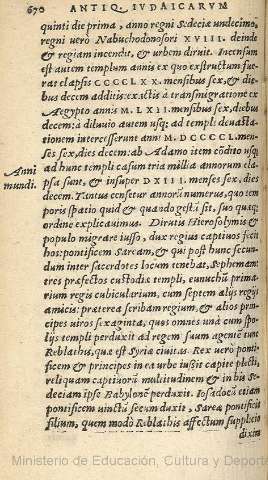 670 ANTIQ. IVDAICARVM
quinti die prima, anno regni Sedeciæ undecimo,
regni verò Nabuchodonosori XVIII. deinde
& regiam incendit, & urbem diruit. Incensum
est autem templum annis ex quo exstructum fue-
rat elapsis CCCCLXX. mensibus sex, & die-
bus decem additis: ex actis à transmigratione ex
Aegypto annis M. LXII. mensibus sex, diebus
decem: à diluuio autem usq; ad templi deuasta-
tionem interesserunt anni M. DCCCCL. men-
ses sex, dies decem: ab Adamo item cōdito usq;
ad hunc templi casum tria millia annorum ela-
psa sunt, & insuper DXIII. menses sex, dies
decem. Tantus censetur annorū numerus, quo tem
poris spatio quid & quando gestū sit, suo quæq;
ordine explicauimus. Dirutis Hierosolymis &
populo migrare iusso, dux regius captiuos fecit
hos: pontificem Saream, & qui post hunc secun-
dum inter sacerdotes locum tenebat, Sephemam:
tres præfectos custodiæ templi, eunuchū primà-
rium regis cubicularium, cum septem alijs regijs
amicis: præterea scribam regium, & alios prin-
cipes viros sexaginta, quos omnes unà cum spo-
lijs templi perduxit ad regem suum agentē tunc
Reblathis, quæ est Syriæ ciuitas. Rex verò ponti-
ficem & principes in ea urbe iußit capite plecti,
reliquam captiuorū multitudinem & in his Se-
deciam ipse Babylonē perduxit. Iosadocū etiam
pontificem uinctū secum duxit, Sareæ pontificis
filium, quem modò Reblathis affectum supplicio
dixim
Anni
mundi.
Ministerio de Educación, Cultura y Deporte